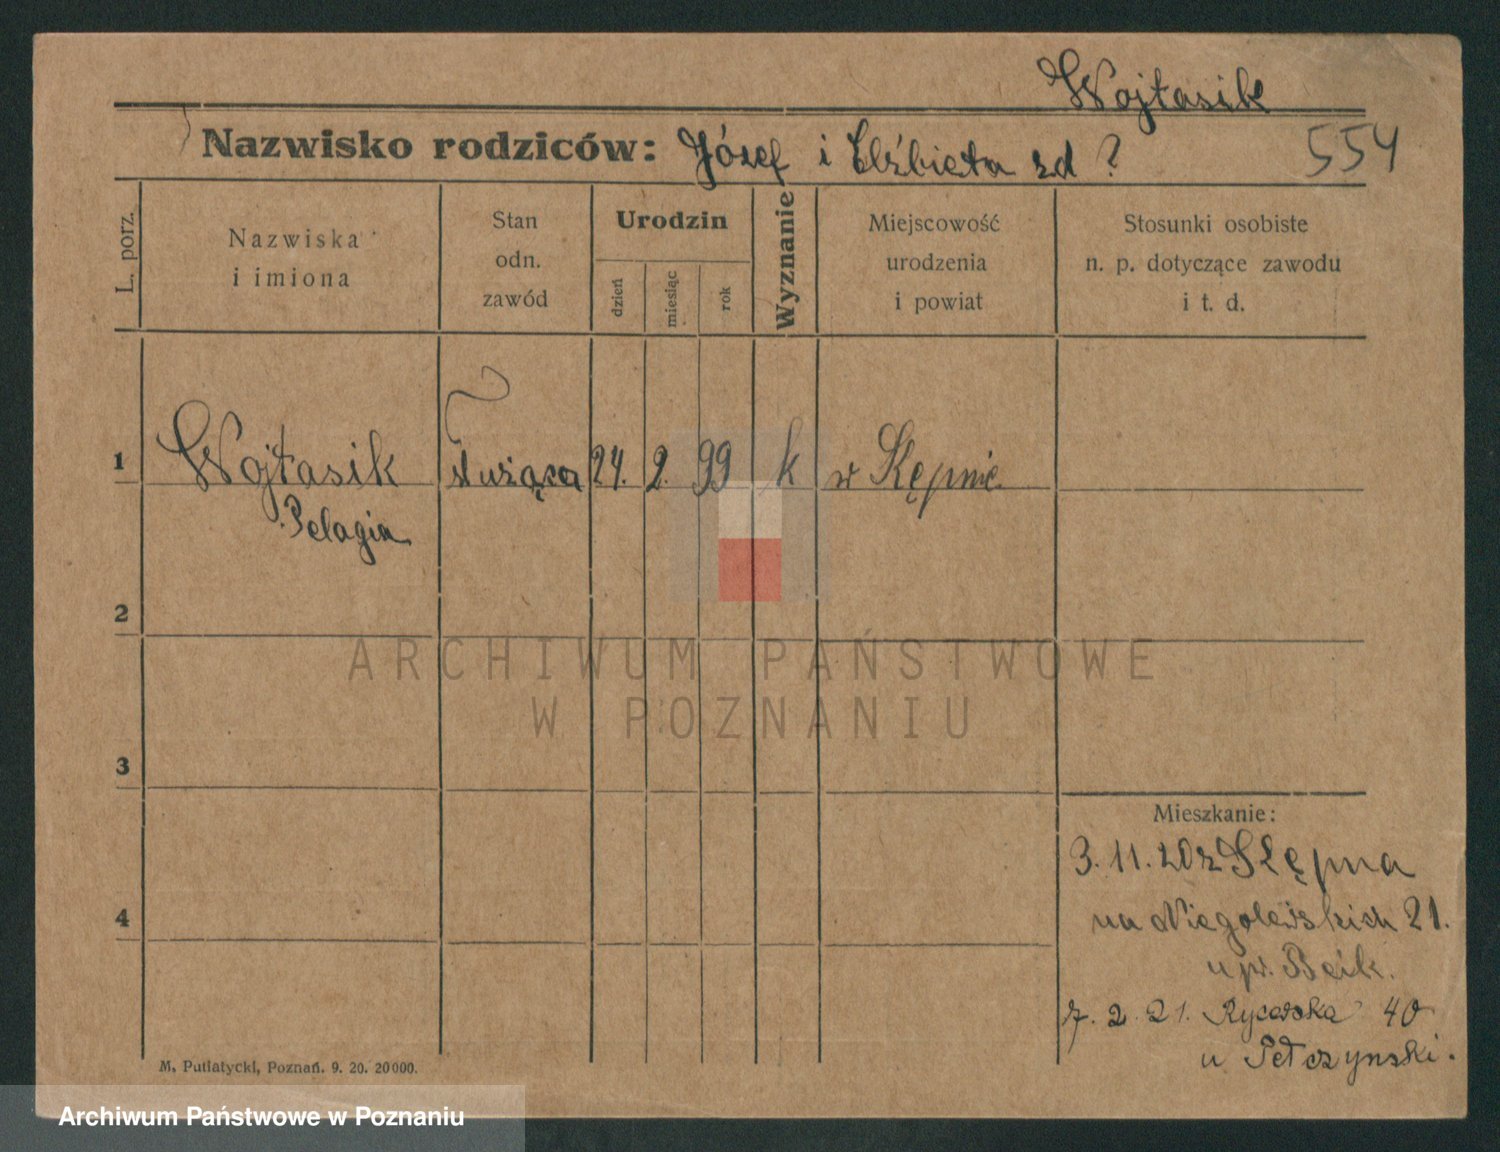 Wojtasik
Nazwisko rodziców: Józef i Elżbieta zd ?
554
L. porz.
Nazwiska
i imiona
Stan
odn.
zawód
Urodzin
dzień
miesiąc
rok
Wyznanie
Miejscowość
urodzenia
i powiat
Stosunki osobiste
n. p. dotyczące zawodu
i t. d.
1 Wojtasik służąca 24. 2. 99 k w Kępnie
Pelagia
2
ARCHIWUM PAŃSTWOWE
W POZNANIU
3
Mieszkanie:
3. 11. 20 z Kępna
4
na Niegolewskich 21.
u pr. Beik.
7. 2. 21. Rycerska 40
u Pełczynski.
M. Putiatycki, Poznań. 9. 20. 20000.
Archiwum Państwowe w Poznaniu